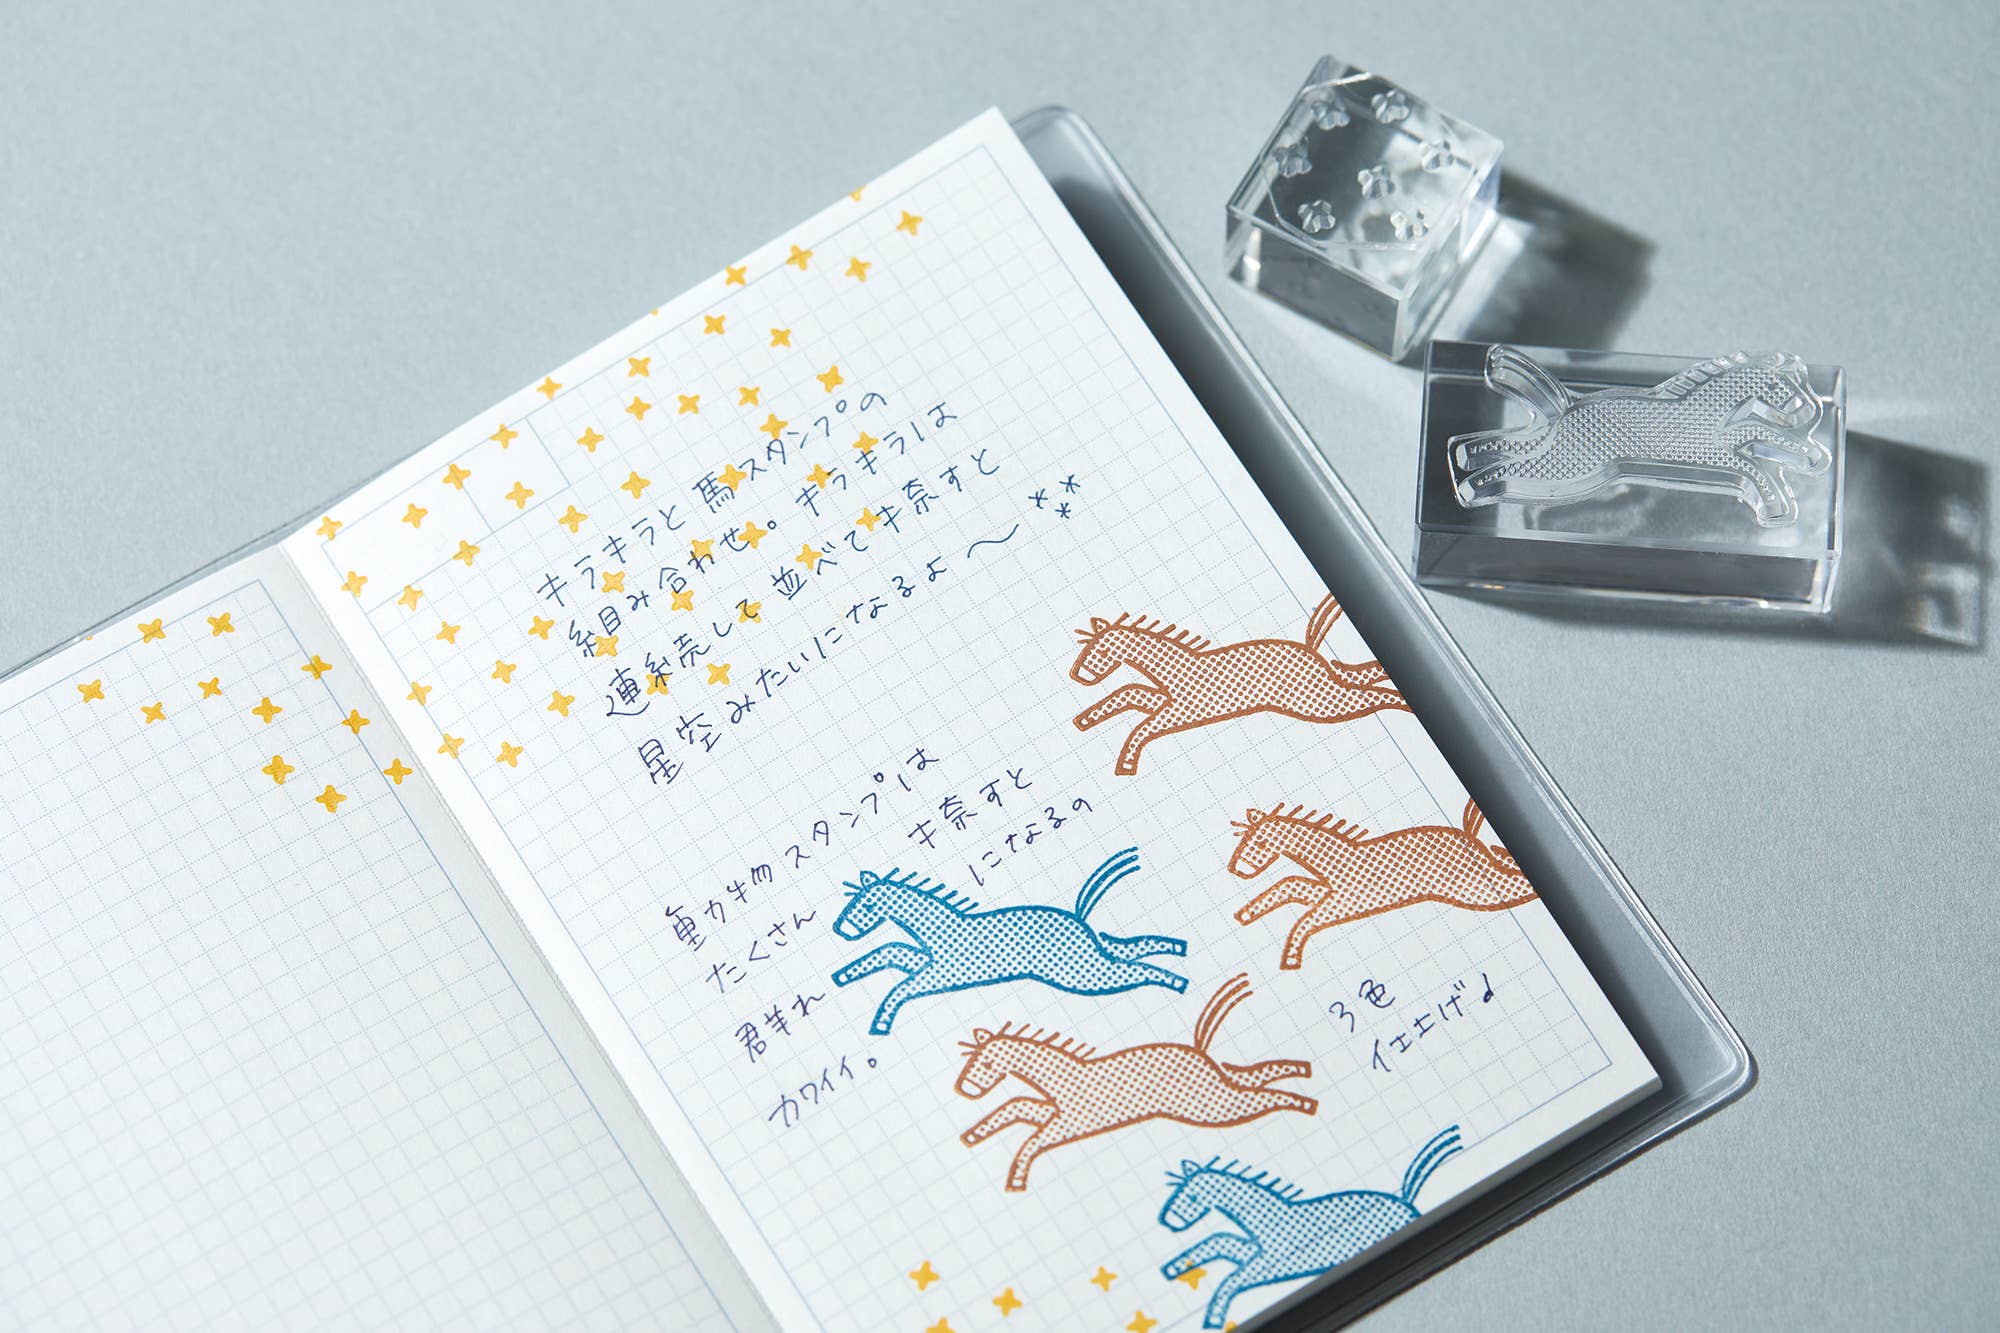 キラキラと馬スタンプの
組み合わせ。キラキラは
連続して並べて捺すと
星空みたいになるよ〜***
動物スタンプは
たくさん捺すと
群れになるの
カワイイ。
3色
仕上げ♪